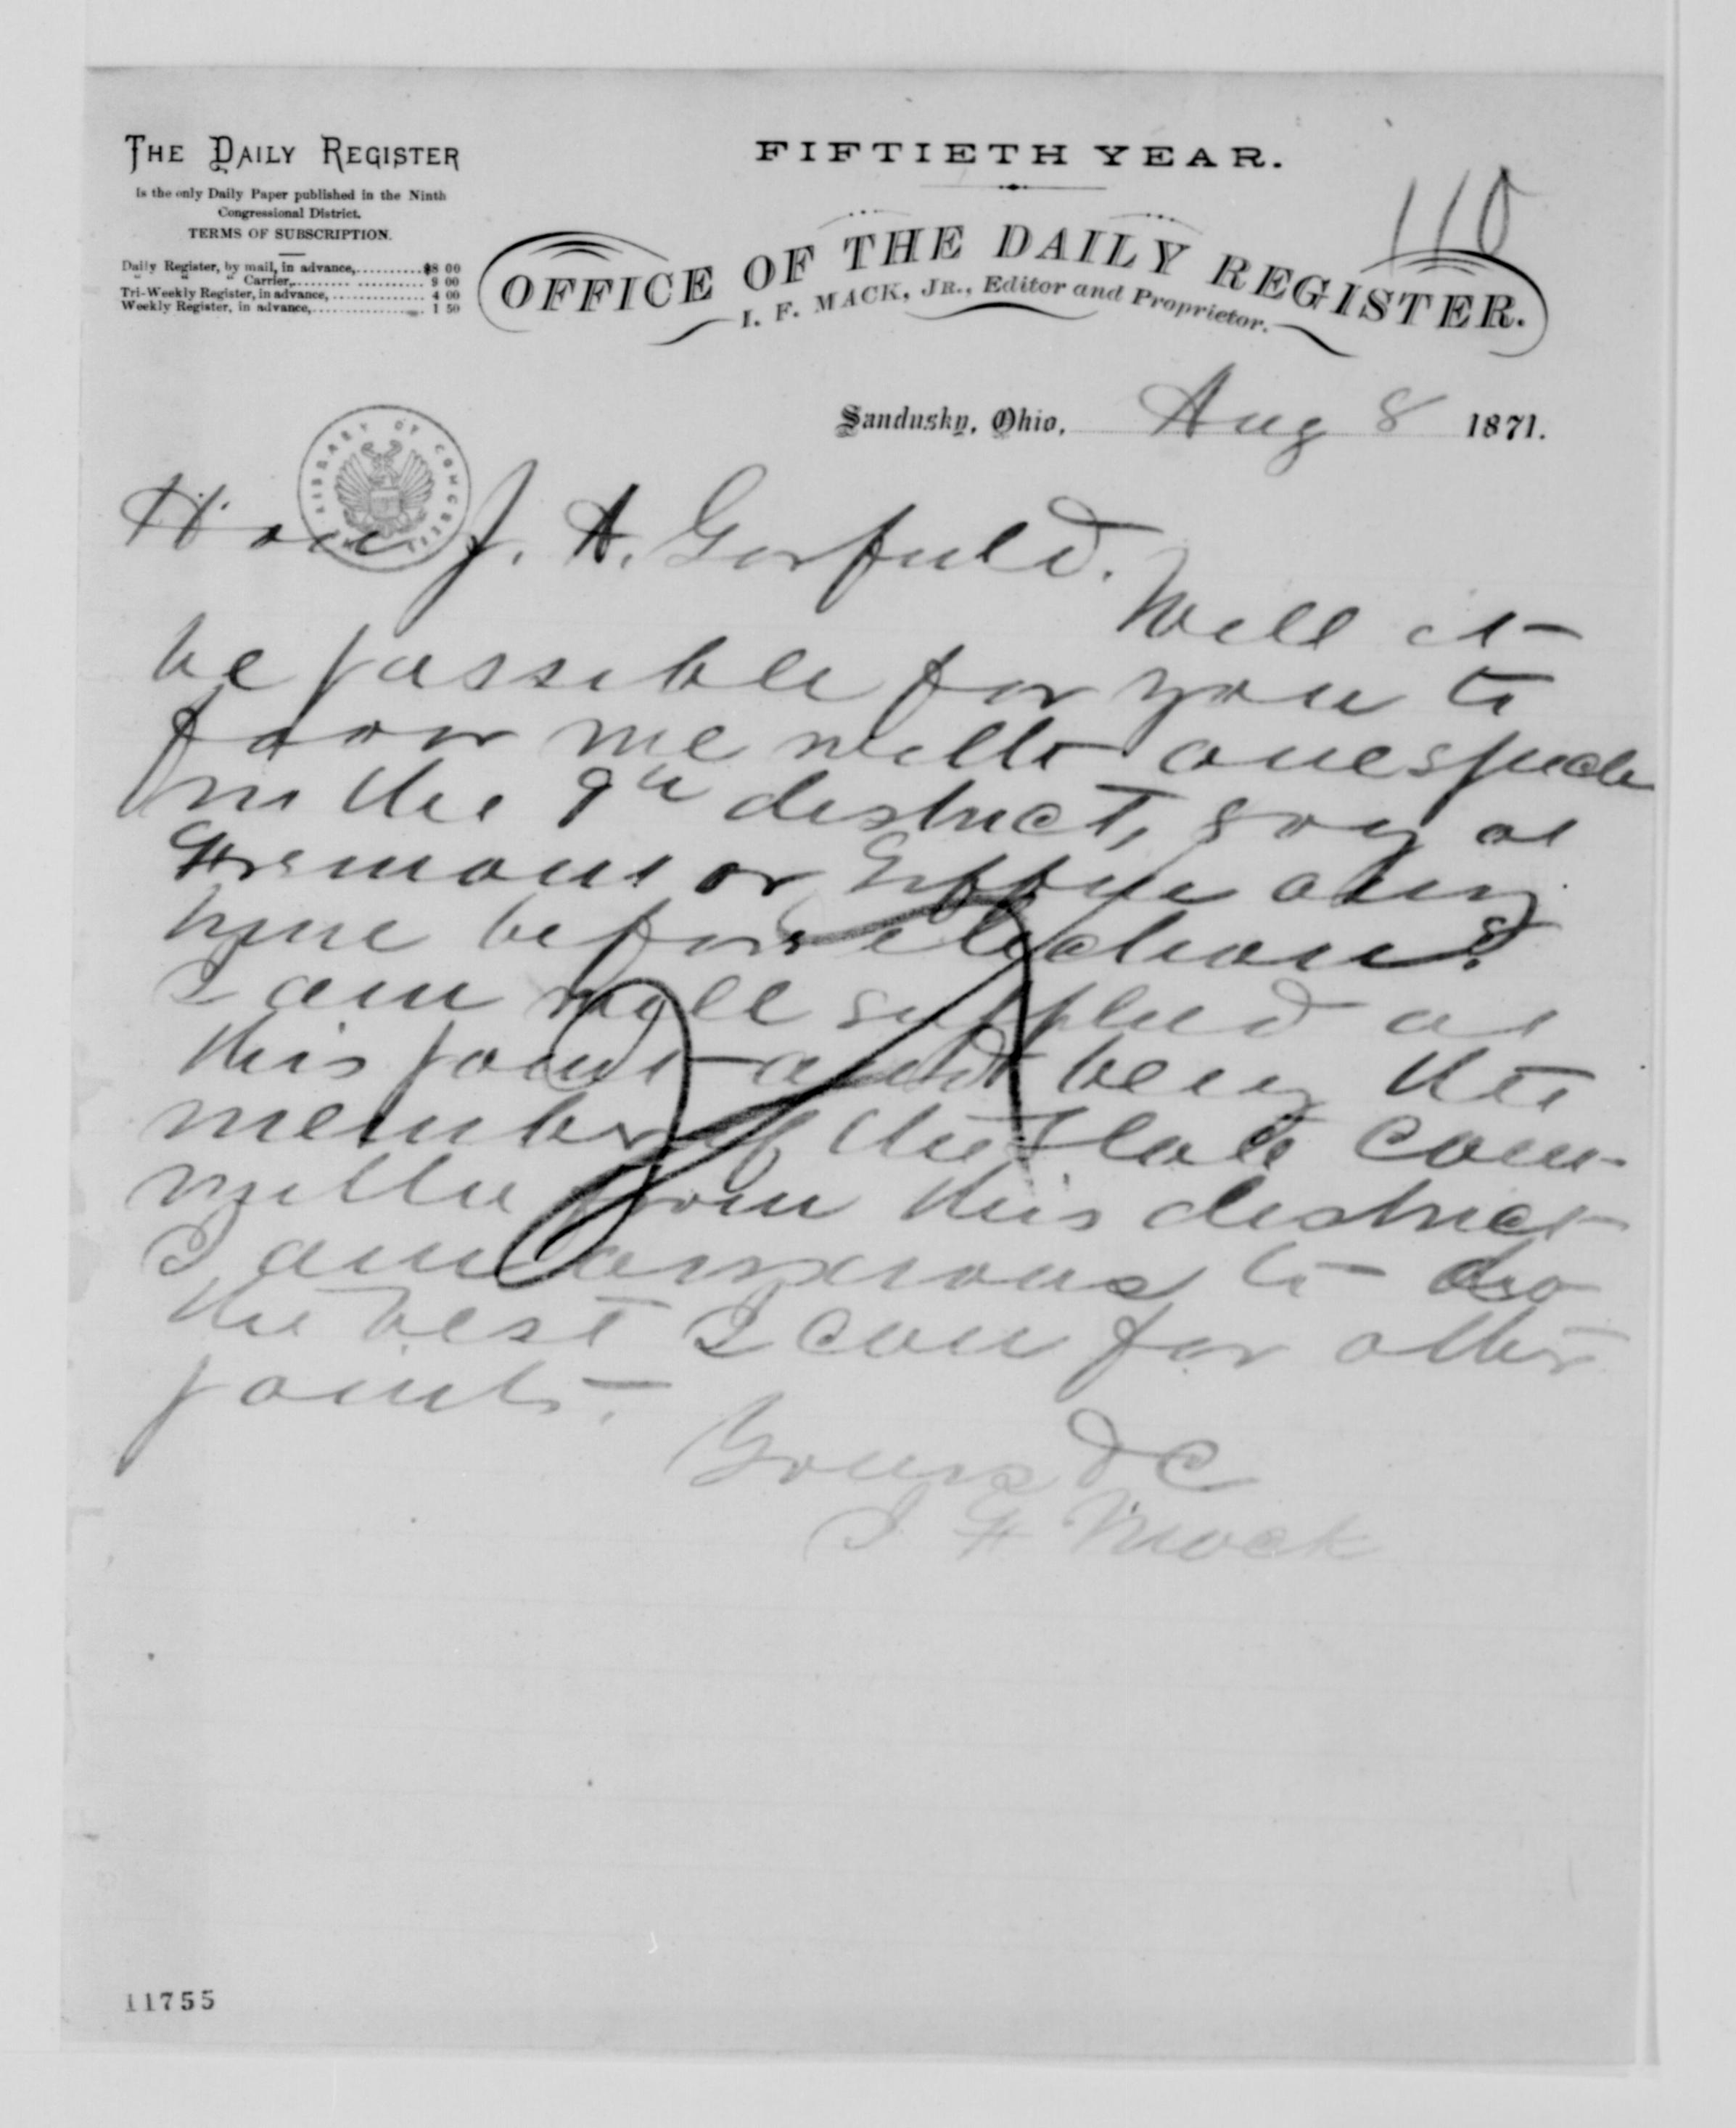 THE DAILY REGISTER
Is the only Daily Paper published in the Ninth
Congressional District.
TERMS OF SUBSCRIPTION.
Daily Register, by mail, in advance,..........$8 00
" " Carrier,.................... 9 00
Tri-Weekly Register, in advance, .............. 4 00
Weekly Register, in advance,.................. 1 50
FIFTIETH YEAR.
110
OFFICE OF THE DAILY REGISTER.
I. F. MACK, JR., Editor and Proprietor.
Sandusky, Ohio, Aug 8 1871.
LIBRARY OF CONGRESS
Hon J. A. Garfield.
Will it
be possible for you to
favor me with one speech
in the 9th district, say at
Fremont or Tiffin any
time before election?
I am well supplied at
this point and being the
member of the State Com-
mittee from this district
I am anxious to do
the best I can for other
points.
Yours &C
I F Mack
11755